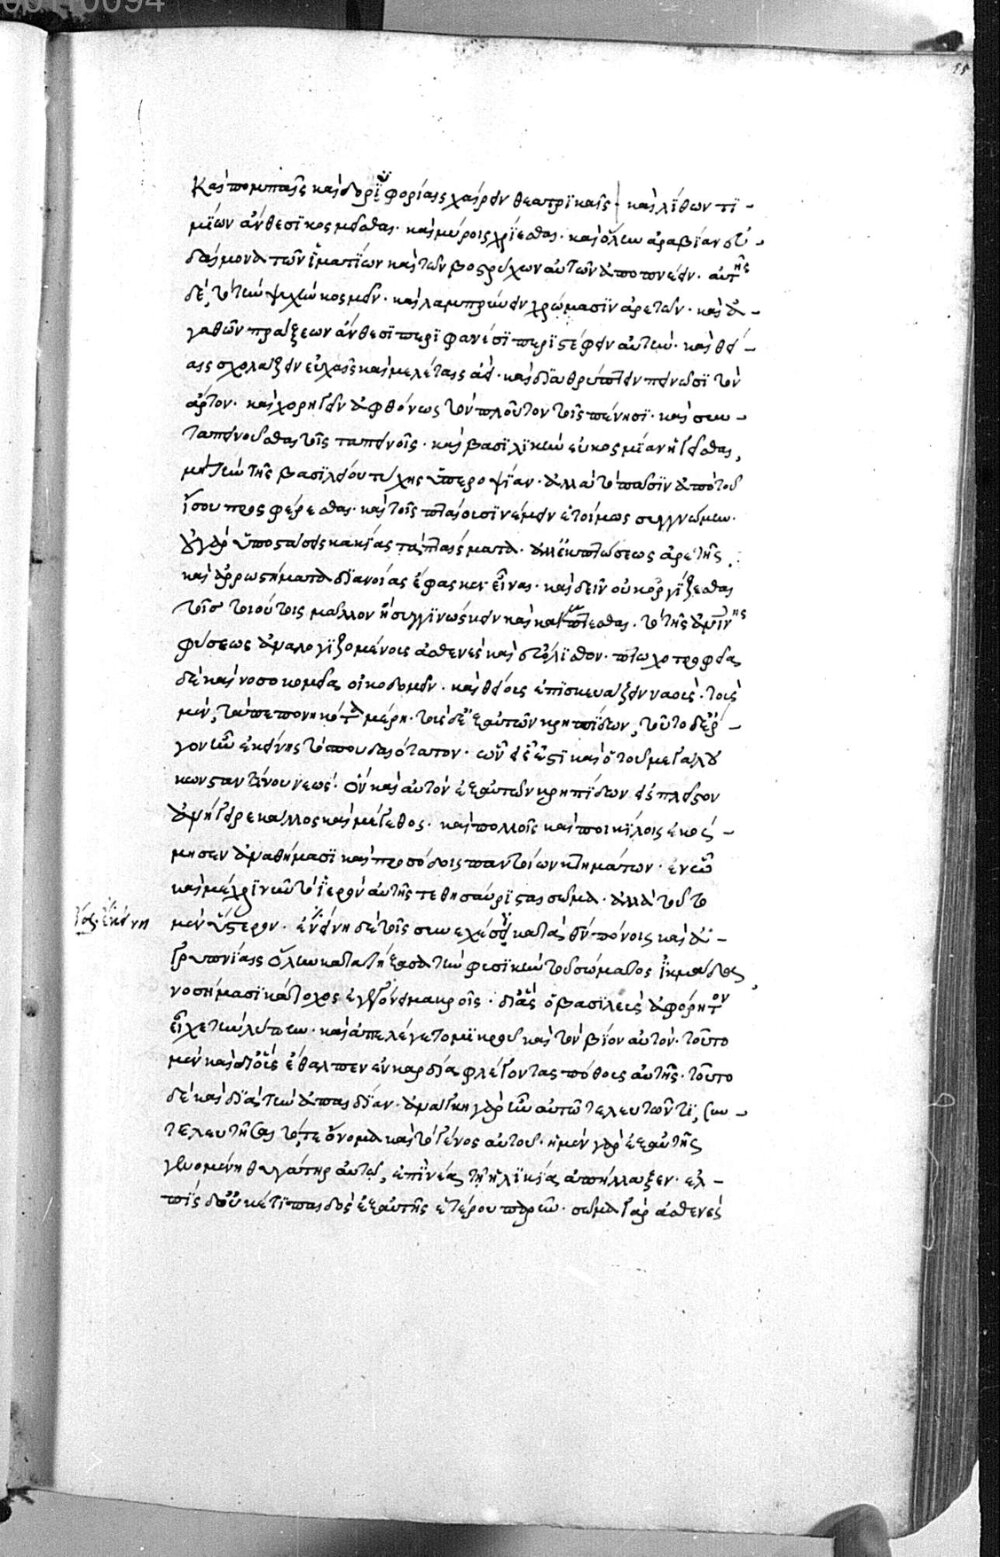 και πομπαῖς καὶ δορυφορίαις χαίρειν θεατρικαῖς καὶ λίθων τι-
μίων ἀνθέσι κοσμεῖσθαι· καὶ μύροις χρίεσθαι· καὶ ὅλην ἀραβίαν εὐ-
δαίμονα τῶν ἱματίων καὶ τῶν βοστρύχων αὐτῶν ἀποπνέειν· αὐτῆς
δὲ, τὸ τὴν ψυχὴν κοσμεῖν· καὶ λαμπρύνειν χρώμασιν ἀρετῶν· καὶ ἀ-
γαθῶν πράξεων ἄνθεσι περιφανέσι περιστέφειν αὐτήν· καὶ θεί-
αις σχολάζειν εὐχαῖς καὶ μελέταις ἀεί· καὶ διαθρύπτειν πεινῶσι τὸν
ἄρτον· καὶ χορηγεῖν ἀφθόνως τὸν πλοῦτον τοῖς πένησι· καὶ συν-
ταπεινοῦσθαι τοῖς ταπεινοῖς· καὶ βασιλικὴν εὐκοσμίαν ἡγεῖσθαι,
μὴ τὴν τῆς βασιλείου τύχης ὑπεροψίαν· ἀλλὰ τὸ πᾶσιν ἀπὸ τοῦ
ἴσου προσφέρεσθαι· καὶ τοῖς πταίουσι νέμειν ἑτοίμως συγγνώμην·
οὐ γὰρ ὑποστάσεις κακίας τὰ πταίσματα· ἀλλ' ἐκπτώσεως ἀρετῆς
καὶ ἀρρωστήματα διανοίας ἔφασκεν εἶναι· καὶ δεῖν οὐκ ὀργίζεσθαι
τοῖς τοιούτοις μᾶλλον ἢ συγγινώσκειν καὶ τὸ τῆς ἀνθρωπίνης
φύσεως ἀναλογιζομένοις ἀσθενὲς καὶ εὐόλισθον· πτωχοτροφεῖα
δὲ καὶ νοσοκομεῖα οἰκοδομεῖν· καὶ θείους ἐπισκευάζειν ναούς· τοὺς
μὲν, τὰ πεπονηκότα μέρη· τοὺς δὲ ἐξ αὐτῶν κρηπίδων, τοῦτο δὲ ἔρ-
γον ἦν ἐκείνης τὸ σπουδαιότατον· ὧν εἷς ἐστι καὶ ὁ τοῦ μεγάλου
κωνσταντίνου νεώς· ὃν καὶ αὐτὸν ἐξ αὐτῶν κρηπίδων εἰς πλεῖστον
ἀνήγειρε κάλλος καὶ μέγεθος· καὶ πολλοῖς καὶ ποικίλοις ἐκόσ-
μησεν ἀναθήμασι καὶ προσόδοις παντοίων κτημάτων· ἐν ᾧ
καὶ μέχρι νῦν τὸ ἱερὸν αὐτῆς τεθησαύρισται σῶμα· ἀλλὰ τοῦτο
μὲν ὕστερον· ἐκείνη δὲ τοῖς συνεχέσι κατὰ θεὸν πόνοις καὶ ἀ-
γρυπνίαις ὅλην κατατήξασα τὴν φυσικὴν τοῦ σώματος ἰκμάδα,
νοσήμασι κάτοχος ἐγεγόνει μακροῖς· δι' ἃς ὁ βασιλεὺς ἀφόρητον
εἶχε τὴν λύπην· καὶ ἀπελέγετο μικροῦ καὶ τὸν βίον αὐτόν· τοῦτο
μὲν καὶ οἷς ἔθαλπεν ἐν καρδίᾳ φλέγοντας πόθους αὐτῆς· τοῦτο
δὲ καὶ διὰ τὴν ἀπαιδίαν· ἀνάγκη γὰρ ἦν αὐτῷ τελευτῶντι, συν-
τελευτῆσαι τό, τε ὄνομα καὶ τὸ γένος αὐτοῦ· ἡ μὲν γὰρ ἐξ αὐτῆς
γενομένη θυγάτηρ αὐτῷ, ἐπὶ νέᾳ τῇ ἡλικίᾳ ἀπήλλαξεν· ἐλ-
πὶς δ' οὐκέτι παιδὸς ἐξ αὐτῆς ἑτέρου παρῆν· σῶμα γὰρ ἀσθενὲς